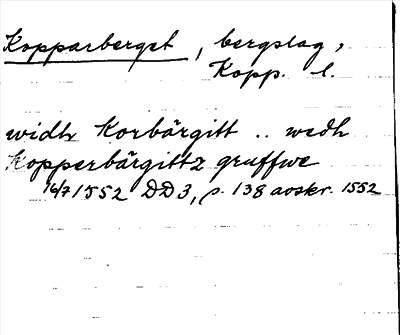 Kopparberget, bergslag,
Kopp. l.
widh Korbärgitt .. wedh
Kopperbärgittz gruffwe
16/7 1552 DD3, s. 138 avskr. 1552